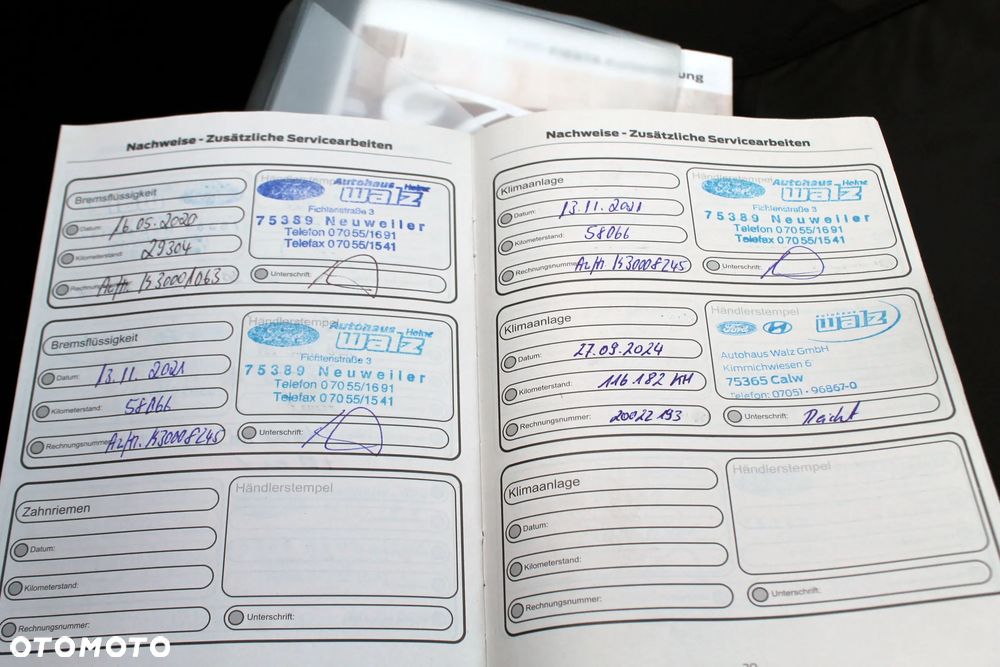 ung
Nachweise - Zusätzliche Servicearbeiten
Bremsflüssigkeit
Datum: 16.05.2020
Kilometerstand: 29304
Rechnungsnummer: K30001063
Händlerstempel
Ford
Autohaus Heinz
Walz
Fichtenstraße 3
75389 Neuweiler
Telefon 07055/1691
Telefax 07055/1541
Unterschrift:
Bremsflüssigkeit
Datum: 13.11.2021
Kilometerstand: 58066
Rechnungsnummer: K30008245
Händlerstempel
Ford
Autohaus Heinz
Walz
Fichtenstraße 3
75389 Neuweiler
Telefon 07055/1691
Telefax 07055/1541
Unterschrift:
Zahnriemen
Datum:
Kilometerstand:
Rechnungsnummer:
Händlerstempel
Unterschrift:
Nachweise - Zusätzliche Servicearbeiten
Klimaanlage
Datum: 13.11.2021
Kilometerstand: 58066
Rechnungsnummer: K30008245
Händlerstempel
Ford
Autohaus Heinz
Walz
Fichtenstraße 3
75389 Neuweiler
Telefon 07055/1691
Telefax 07055/1541
Unterschrift:
Klimaanlage
Datum: 27.09.2024
Kilometerstand: 116182 KM
Rechnungsnummer: 20022193
Händlerstempel
Ford
AUTOHAUS
Walz
Autohaus Walz GmbH
Kimmichwiesen 6
75365 Calw
Telefon: 07051-96867-0
Unterschrift:
Klimaanlage
Datum:
Kilometerstand:
Rechnungsnummer:
Händlerstempel
Unterschrift:
OTOMOTO